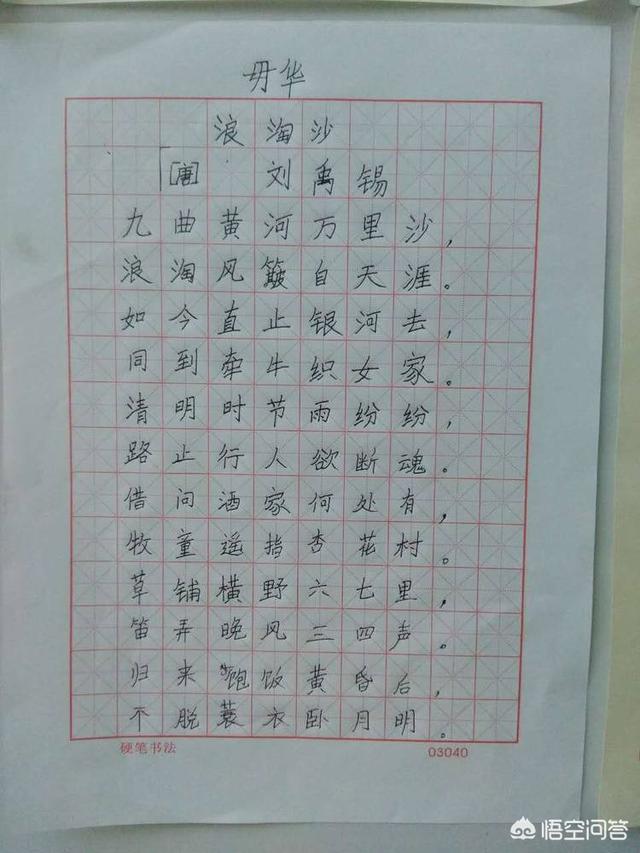 毋华
浪淘沙
[唐] 刘禹锡
九曲黄河万里沙，
浪淘风簸自天涯。
如今直止银河去，
同到牵牛织女家。
清明时节雨纷纷，
路止行人欲断魂。
借问酒家何处有，
牧童遥指杏花村。
草铺横野六七里，
笛弄晚风三四声。
归来饱饭黄昏后，
不脱蓑衣卧月明。
硬笔书法 03040
悟空问答